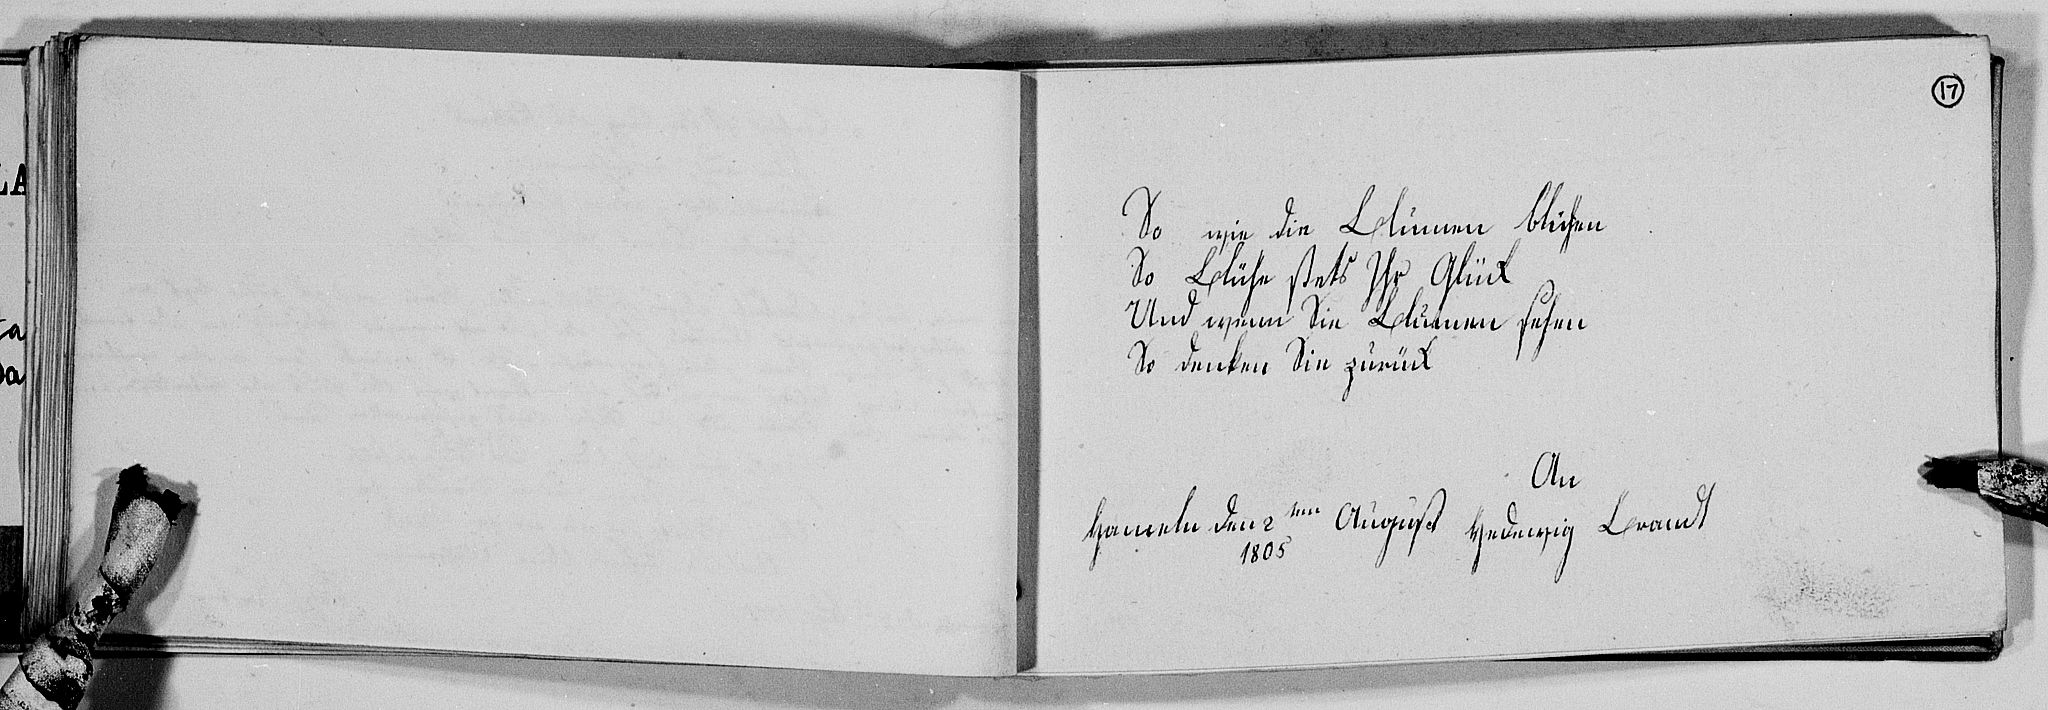 17
So wie die Blumen blühen
So Blühe stets Ihr Glück
Und wenn Sie Blumen sehen
So denken Sie zurück
An
Hameln den 2ten August Hedewig Brandt
1805
LA
ta
da